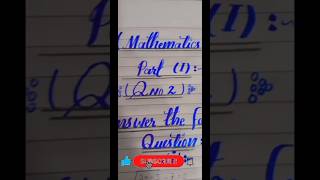 (Mathematics
Part (I):~
(Q no 2)
nswer the fo
Question:
SUBSCRIBE